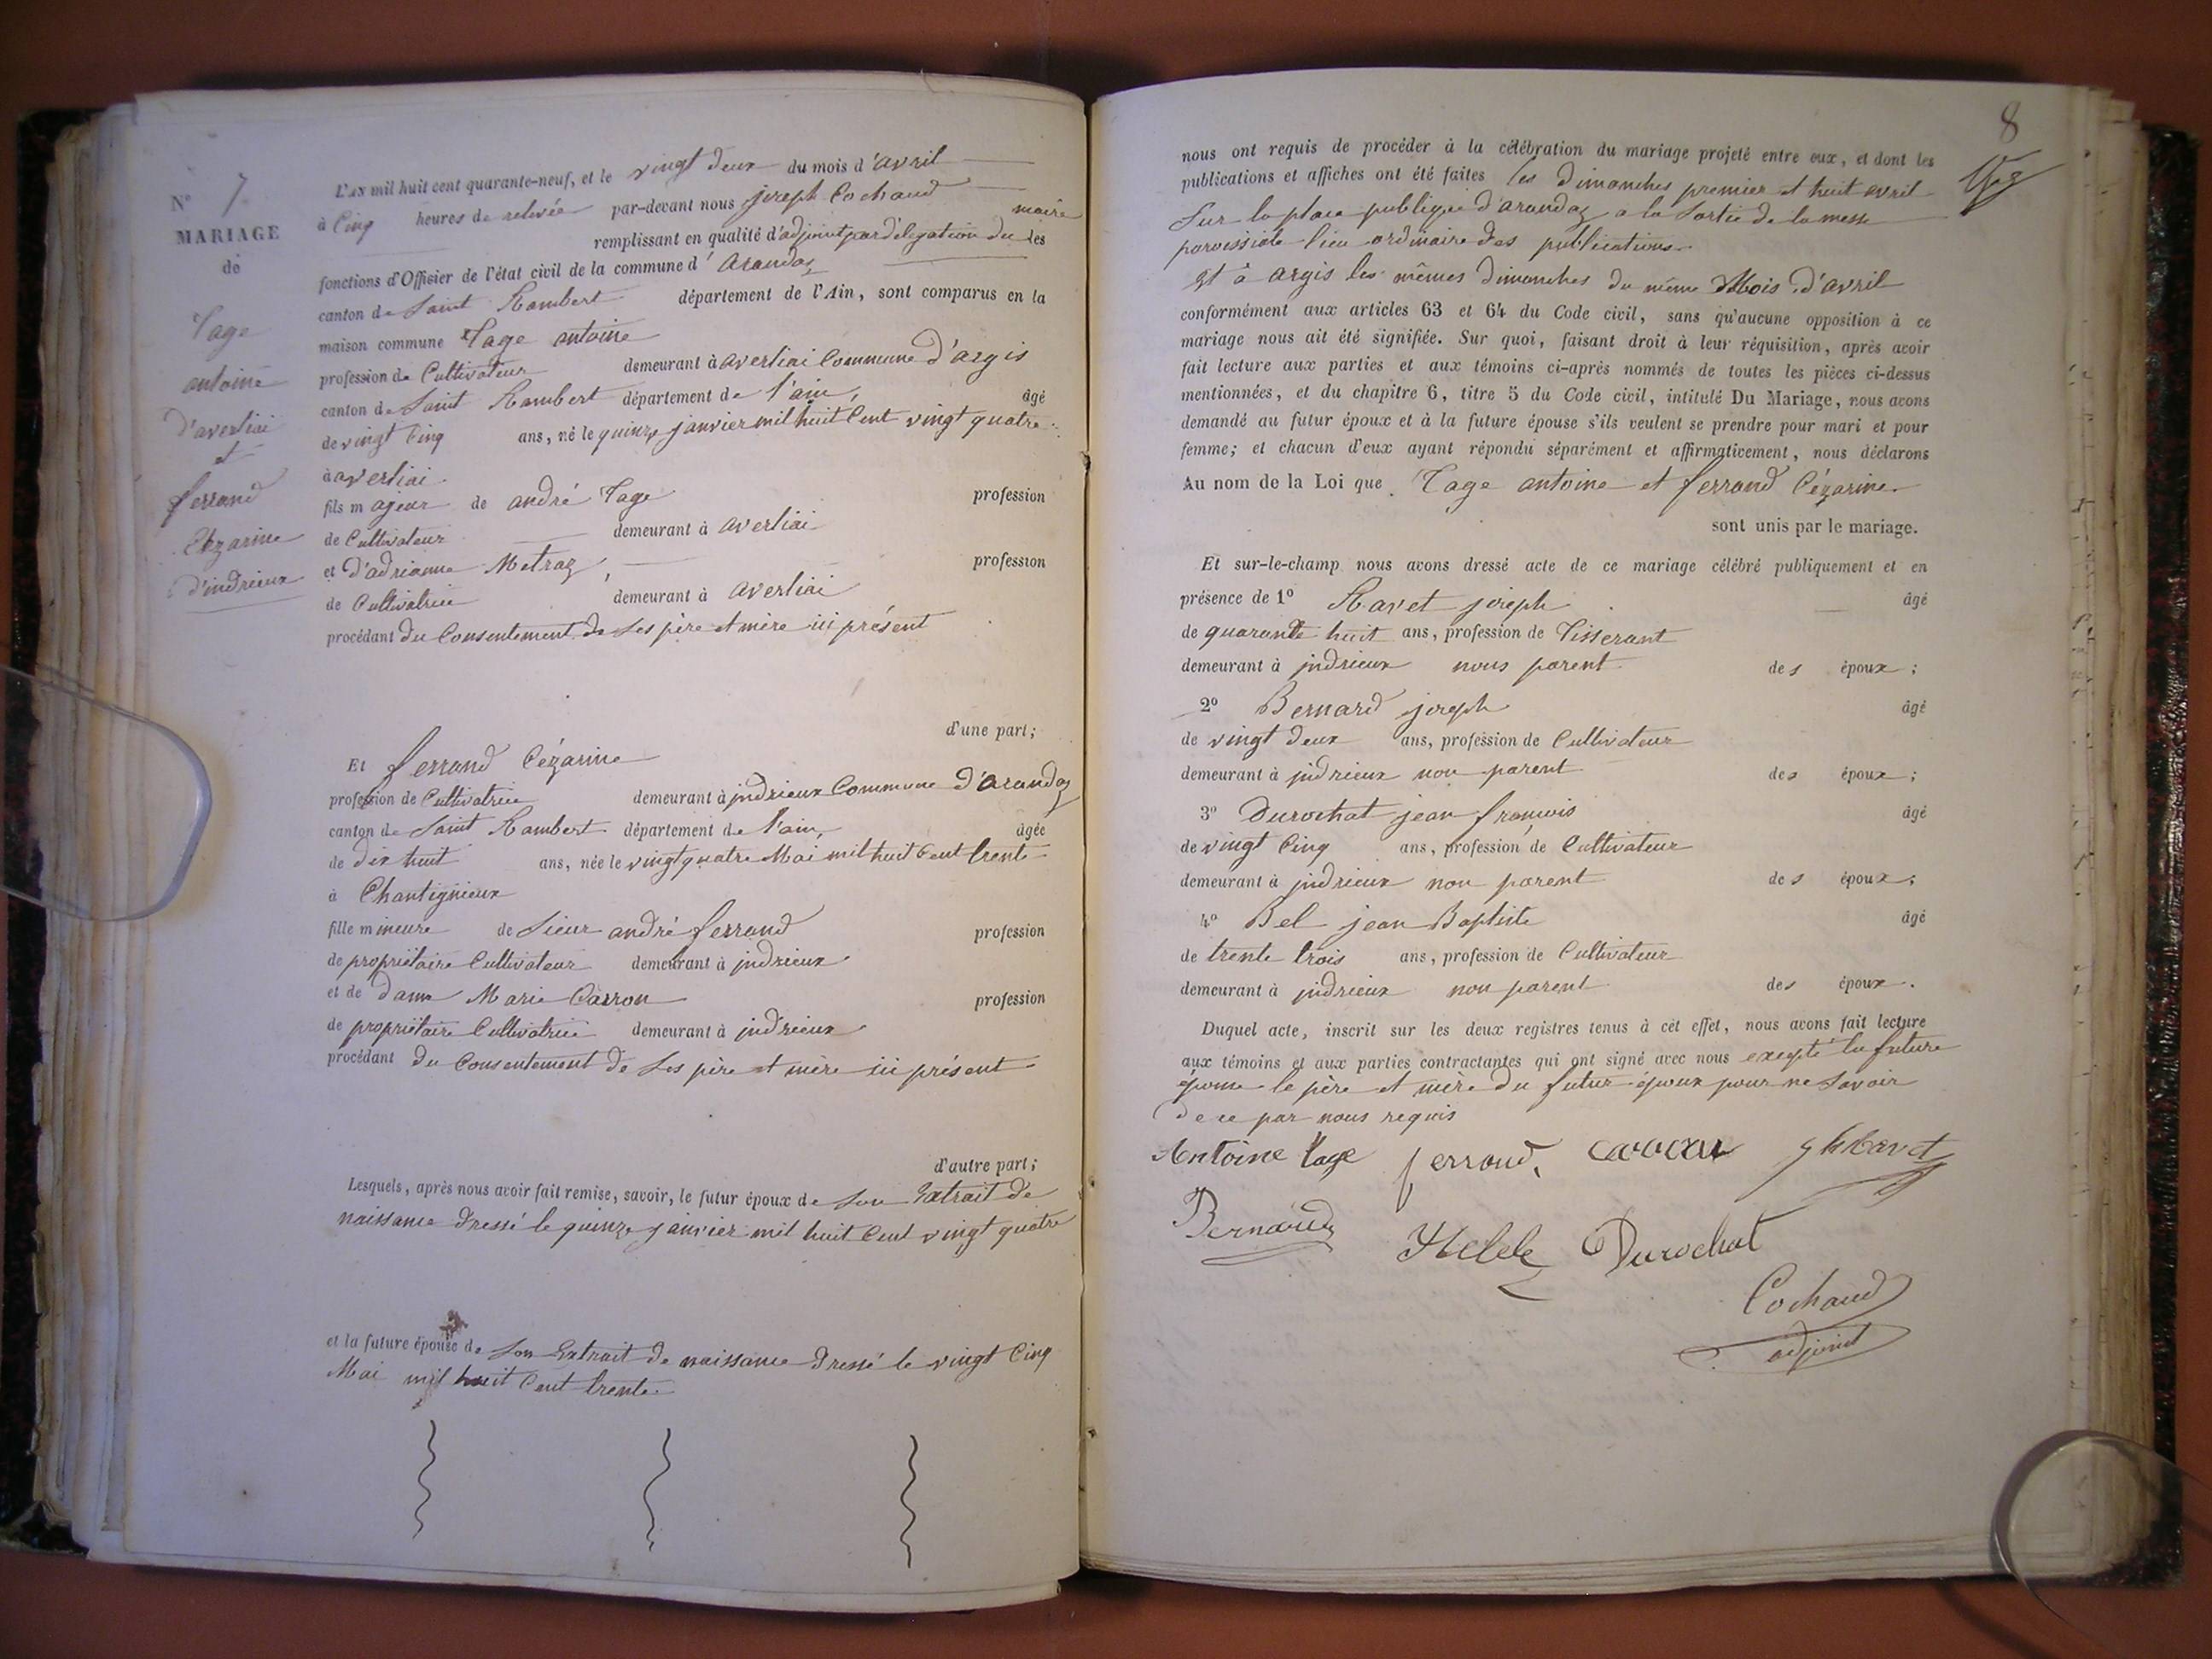 N° 7
MARIAGE
de
Tage
antoine
d'avertiai
et
ferrand
Cézarine
d'indrieux
L'AN mil huit cent quarante-neuf, et le vingt deux du mois d'avril
à Cinq heures de relevée par-devant nous joseph Cochaud maire
remplissant en qualité d'adjoint par délégation du les
fonctions d'Officier de l'état civil de la commune d'Arandaz
canton de Saint Rambert département de l'Ain, sont comparus en la
maison commune Tage antoine
profession de Cultivateur demeurant à avertiai Commune d'argis
canton de Saint Rambert département de l'ain, âgé
de vingt Cinq ans, né le quinze janvier mil huit Cent vingt quatre
à avertiai
fils majeur de andré Tage profession
de Cultivateur demeurant à avertiai
et d'adrianne Metraz, profession
de Cultivatrice demeurant à avertiai
procédant du Consentement de Ses père et mère ici présent
d'une part;
Et ferrand Cézarine
profession de Cultivatrice demeurant à jndrieux Commune d'Arandaz
canton de Saint Rambert département de l'ain, âgée
de dix huit ans, née le vingt quatre Mai mil huit Cent trente
à Chantignieux
fille mineure de Sieur andré ferrand profession
de propriétaire Cultivateur demeurant à jndrieux
et de dame Marie Carron profession
de propriétaire Cultivatrice demeurant à jndrieux
procédant du Consentement de Ses père et mère ici présent
d'autre part;
Lesquels, après nous avoir fait remise, savoir, le futur époux de Son Extrait de
naissance dressé le quinze janvier mil huit Cent vingt quatre
et la future épouse de Son Extrait de naissance dressé le vingt Cinq
Mai mil huit Cent trente
8
nous ont requis de procéder à la célébration du mariage projeté entre eux, et dont les
publications et affiches ont été faites les dimanches premier et huit avril
Sur la place publique d'arandaz a la Sortie de la messe
paroissiale lieu ordinaire des publications
Et à argis les mêmes dimanches du même Mois d'avril
conformément aux articles 63 et 64 du Code civil, sans qu'aucune opposition à ce
mariage nous ait été signifiée. Sur quoi, faisant droit à leur réquisition, après avoir
fait lecture aux parties et aux témoins ci-après nommés de toutes les pièces ci-dessus
mentionnées, et du chapitre 6, titre 5 du Code civil, intitulé Du Mariage, nous avons
demandé au futur époux et à la future épouse s'ils veulent se prendre pour mari et pour
femme; et chacun d'eux ayant répondu séparément et affirmativement, nous déclarons
Au nom de la Loi que Tage antoine et ferrand Cézarine
sont unis par le mariage.
Et sur-le-champ nous avons dressé acte de ce mariage célébré publiquement et en
présence de 1° Ravet joseph âgé
de quarante huit ans, profession de Tisserant
demeurant à jndrieux nous parent des époux;
2° Bernard joseph âgé
de vingt deux ans, profession de Cultivateur
demeurant à jndrieux non parent des époux;
3° Durochat jean françois âgé
de vingt Cinq ans, profession de Cultivateur
demeurant à jndrieux non parent des époux;
4° Bel jean Baptiste âgé
de trente trois ans, profession de Cultivateur
demeurant à jndrieux non parent des époux.
Duquel acte, inscrit sur les deux registres tenus à cet effet, nous avons fait lecture
aux témoins et aux parties contractantes qui ont signé avec nous excepté la future
épouse le père et mère du futur époux pour ne Savoir
de ce par nous requis
Antoine tage ferrand,
Bernard Durochat
Cochaud
adjoint